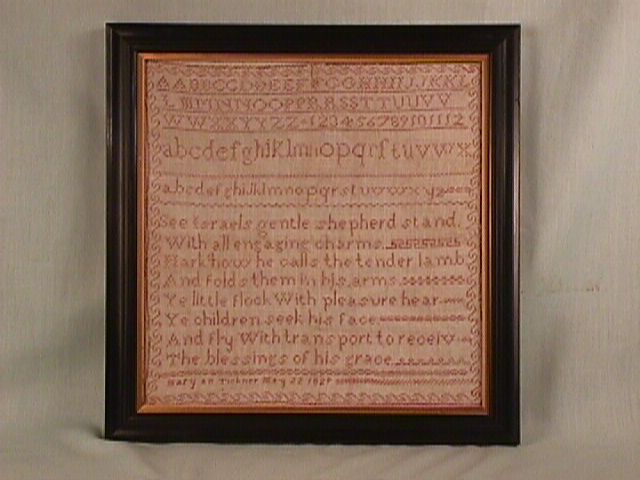 AABBCCDDEEFFGGHHIIJJKKL
LMMNNOOPPRRSSTTUUVV
WWXXYYZZ 123456789101112
abcdefghiklmnopqrstuvwx
abcdefghijklmnopqrstuvwxyz
see israels gentle shepherd stand.
With all engaging charms
Hark how he calls the tender lamb
And folds them in his arms
Ye little flock With pleasure hear
Ye children seek his face
And fly With transport to receiv
The blessings of his grace
Mary an Tickner May 22